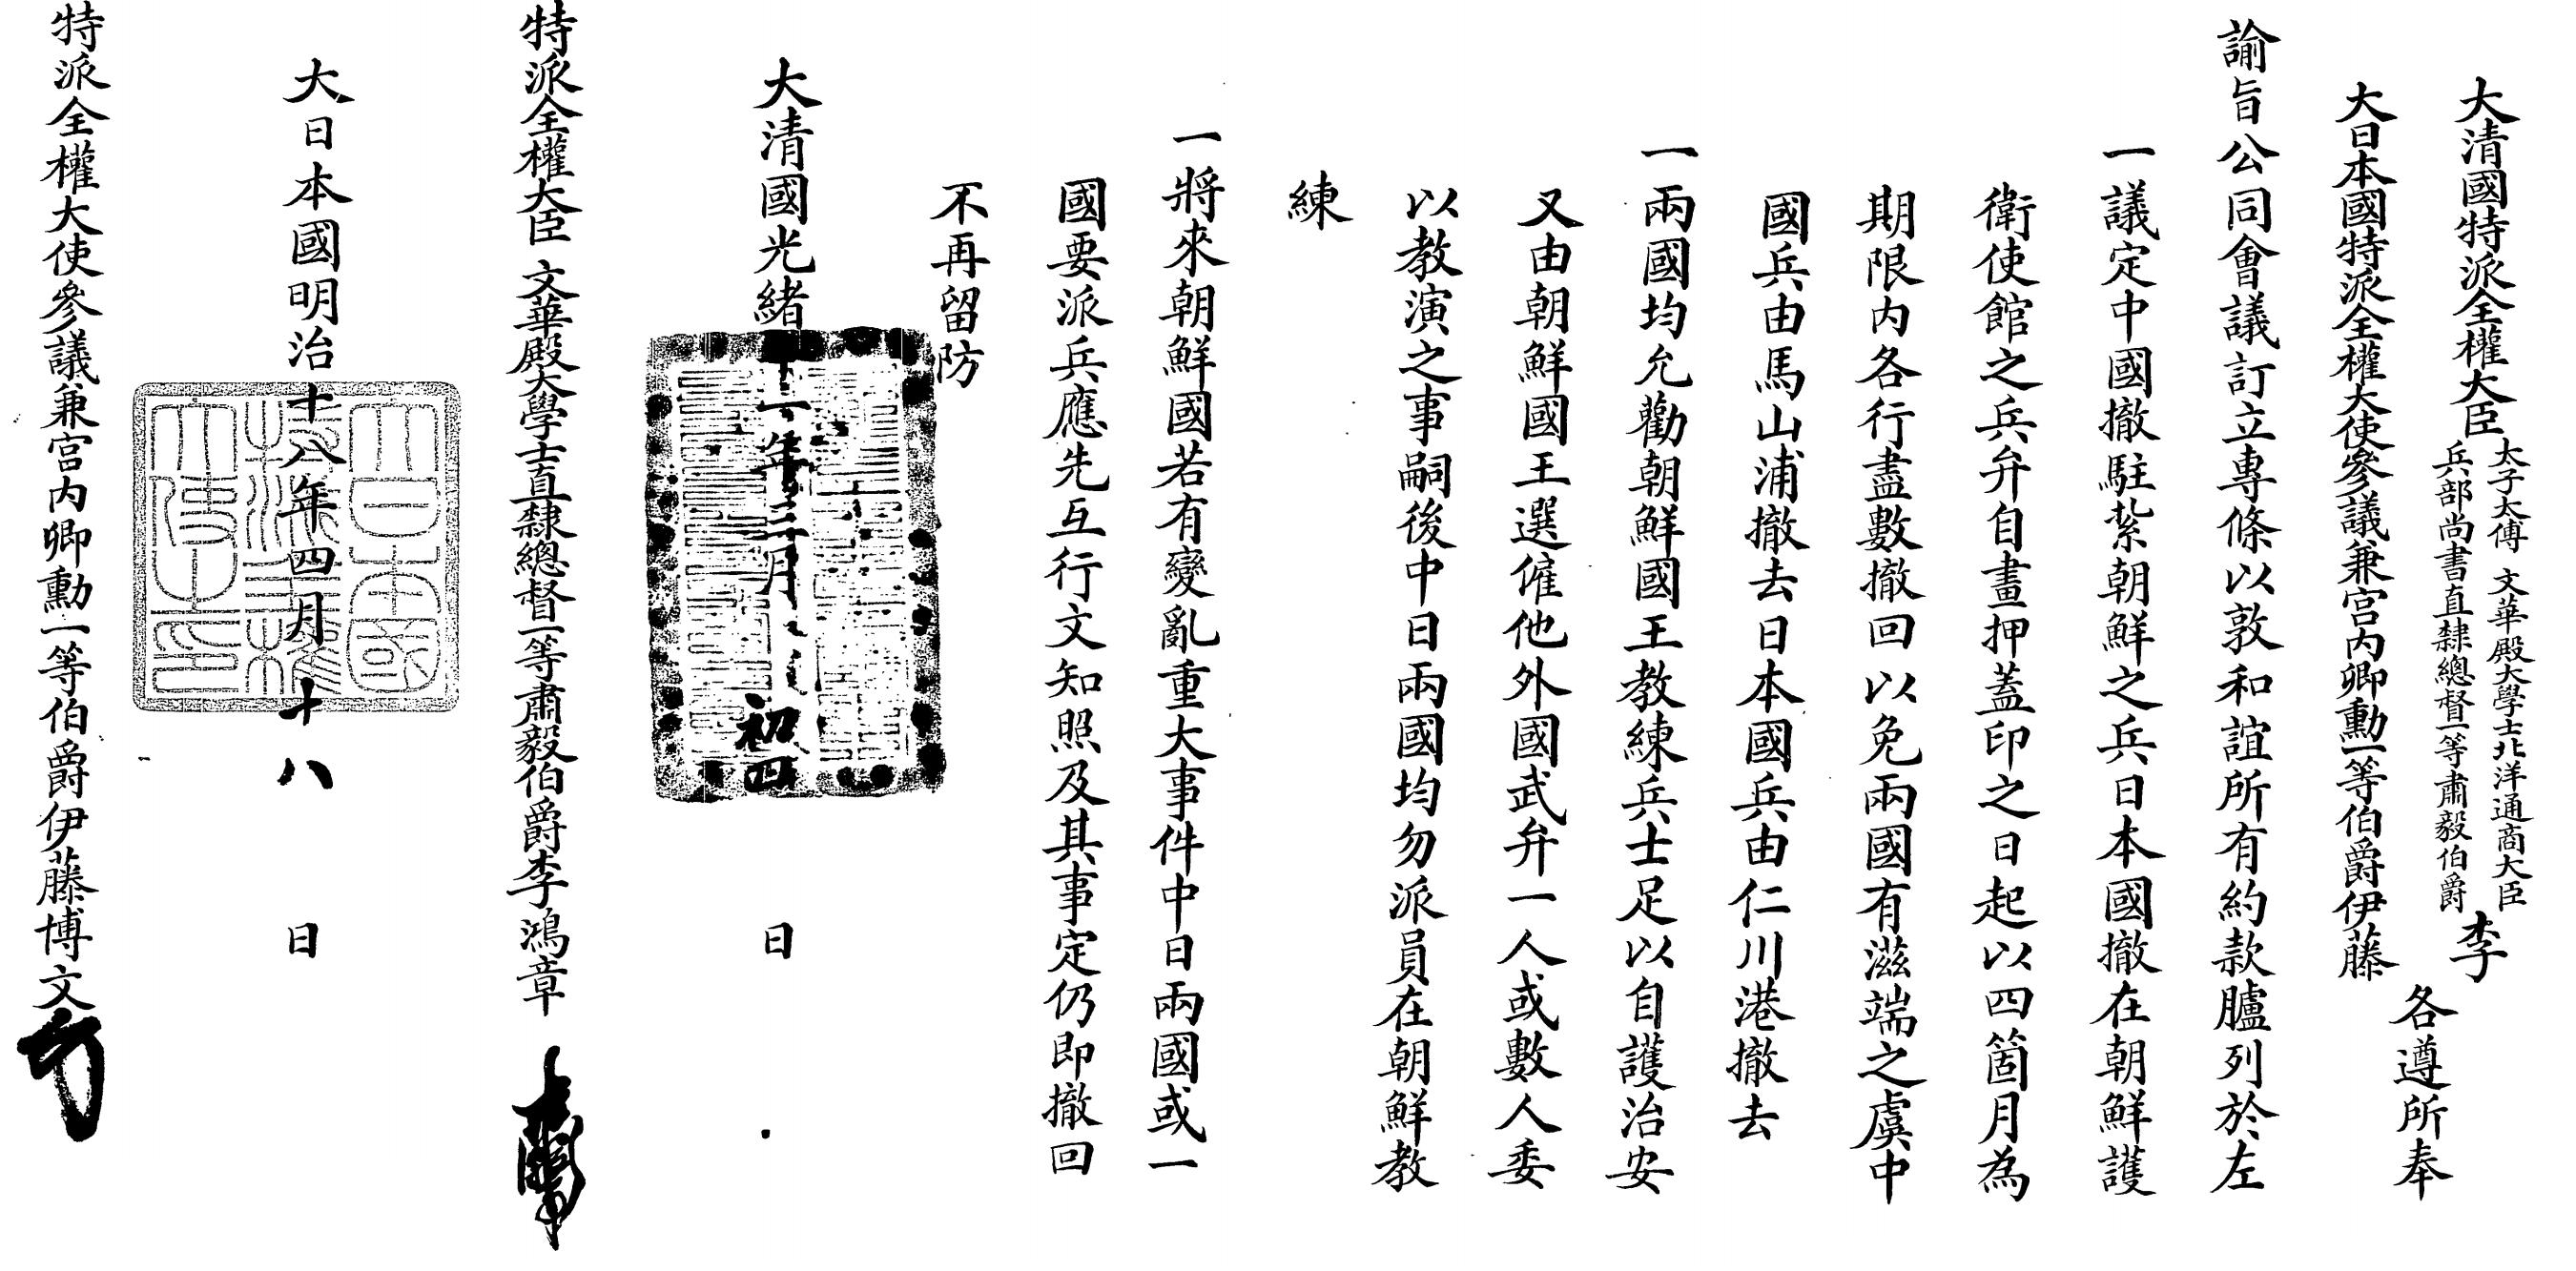 大清國特派全權大臣太子太傅文華殿大學士北洋通商大臣兵部尚書直隸總督一等肅毅伯爵李
大日本國特派全權大使參議兼宮內卿勳一等伯爵伊藤
各遵所奉
諭旨公同會議訂立專條以敦和誼所有約款臚列於左
一議定中國撤駐紮朝鮮之兵日本國撤在朝鮮護
衛使館之兵弁自畫押蓋印之日起以四箇月為
期限內各行盡數撤回以免兩國有滋端之虞中
國兵由馬山浦撤去日本國兵由仁川港撤去
一兩國均允勸朝鮮國王教練兵士足以自護治安
又由朝鮮國王選僱他外國武弁一人或數人委
以教演之事嗣後中日兩國均勿派員在朝鮮教
練
一將來朝鮮國若有變亂重大事件中日兩國或一
國要派兵應先互行文知照及其事定仍即撤回
不再留防
大清國光緒十一年三月初四日
特派全權大臣文華殿大學士直隸總督一等肅毅伯爵李鴻章
大日本國明治十八年四月十八日
大日本國
特派全權
大使之印
特派全權大使參議兼宮內卿勳一等伯爵伊藤博文